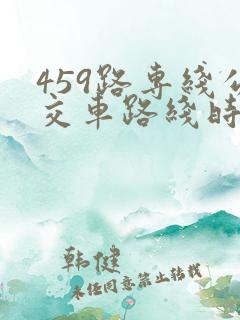 459路専綫公
交車路綫時
韩健
未经同意禁止转载